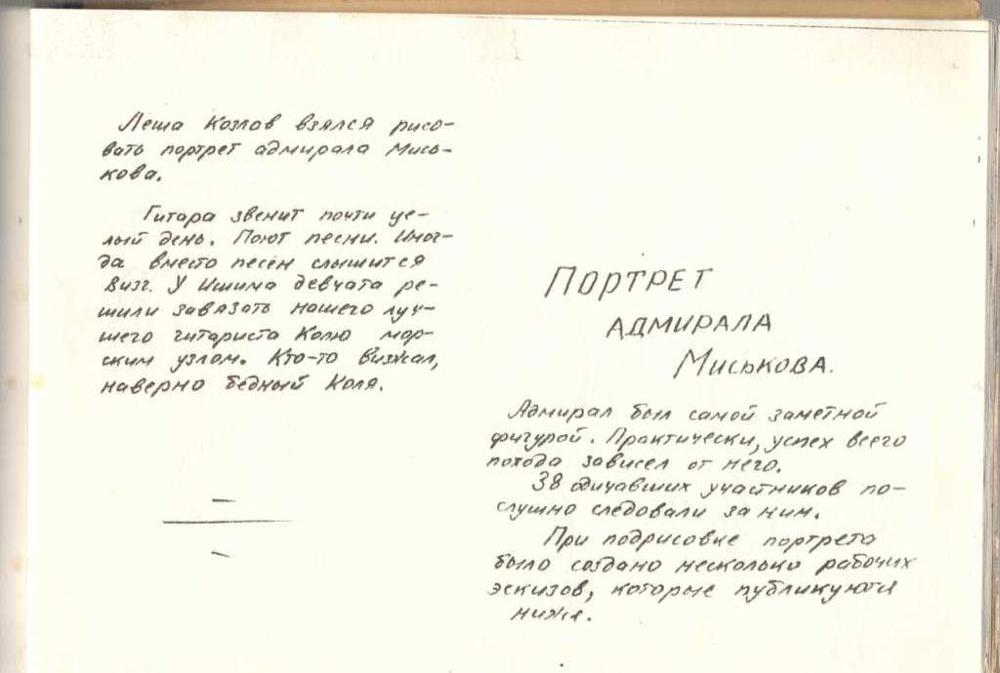 Леша Козлов взялся рисо-
вать портрет адмирала Мись-
кова.
Гитара звенит почти це-
лый день. Поют песни. Иног-
да вместо песен слышится
визг. У Ишима девчата ре-
шили завязать нашего луч-
шего гитариста Колю мор-
ским узлом. Кто-то визжал,
наверно бедный Коля.
ПОРТРЕТ
АДМИРАЛА
МИСЬКОВА.
Адмирал был самой заметной
фигурой. Практически, успех всего
похода зависел от него.
38 одичавших участников по-
слушно следовали за ним.
При подрисовке портрета
было создано несколько рабочих
эскизов, которые публикуются
ниже.